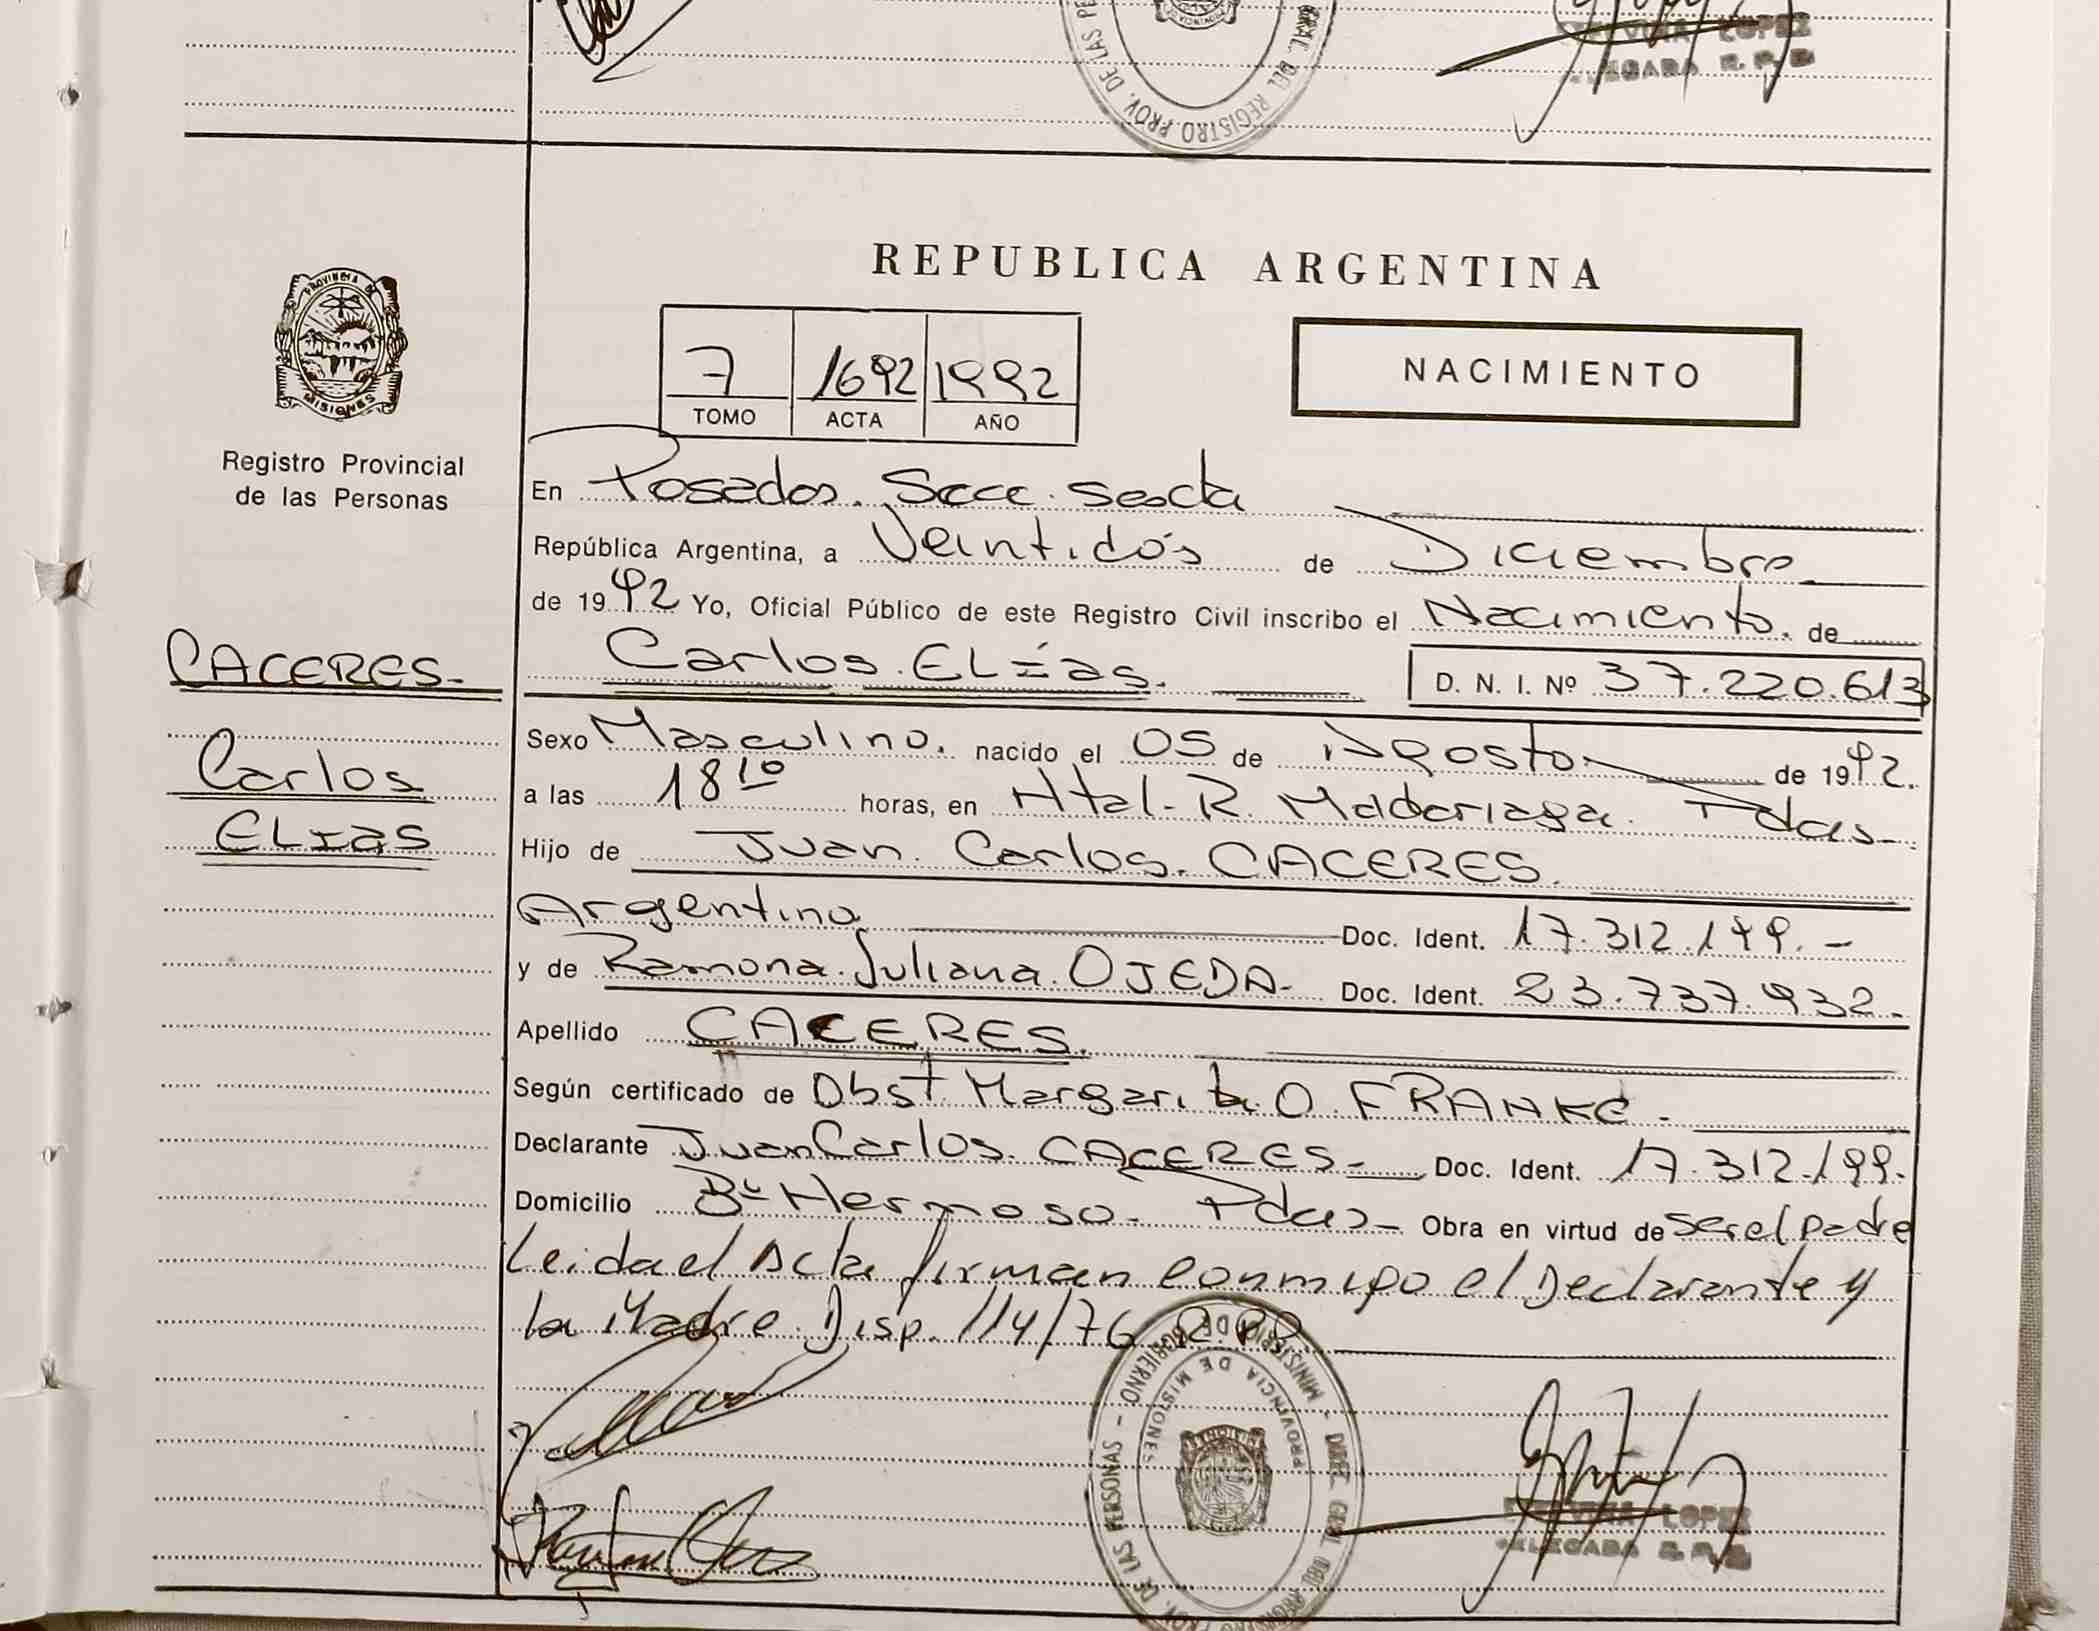 LOPEZ
DELEGADA R. P. P.
PROV. DE LAS PE
GRAL. DEL REGISTRO
REPUBLICA ARGENTINA
PROVINCIA DE
MISIONES
Registro Provincial
de las Personas
7 1692 1992
TOMO ACTA AÑO
NACIMIENTO
En Posadas. Secc. Sexta
República Argentina, a Veintidós de Diciembre
de 1992 Yo, Oficial Público de este Registro Civil inscribo el Nacimiento. de
CACERES.
Carlos. ELías. D. N. I. Nº 37.220.613
Carlos
ELIAS
Sexo Masculino. nacido el 05 de Agosto de 1992.
a las 18 10 horas, en Htal. R. Madariaga. Pdas
Hijo de Juan. Carlos. CACERES.
Argentino Doc. Ident. 17.312.199.-
y de Ramona. Juliana. OJEDA- Doc. Ident. 23.737.932.-
Apellido CACERES.
Según certificado de Obst. Margarita O. FRANKE-
Declarante Juan Carlos. CACERES- Doc. Ident. 17.312.199.
Domicilio Bº Hermoso. Pdas- Obra en virtud de ser el padre
Leida el Acta firman conmigo el Declarante y
la Madre. Disp. 114/76 R.PP.
MINISTERIO DE GOBIERNO - DIREC. GRAL. DEL REGISTRO PROV. DE LAS PERSONAS -
PROVINCIA DE MISIONES
LOPEZ
DELEGADA R. P. P.